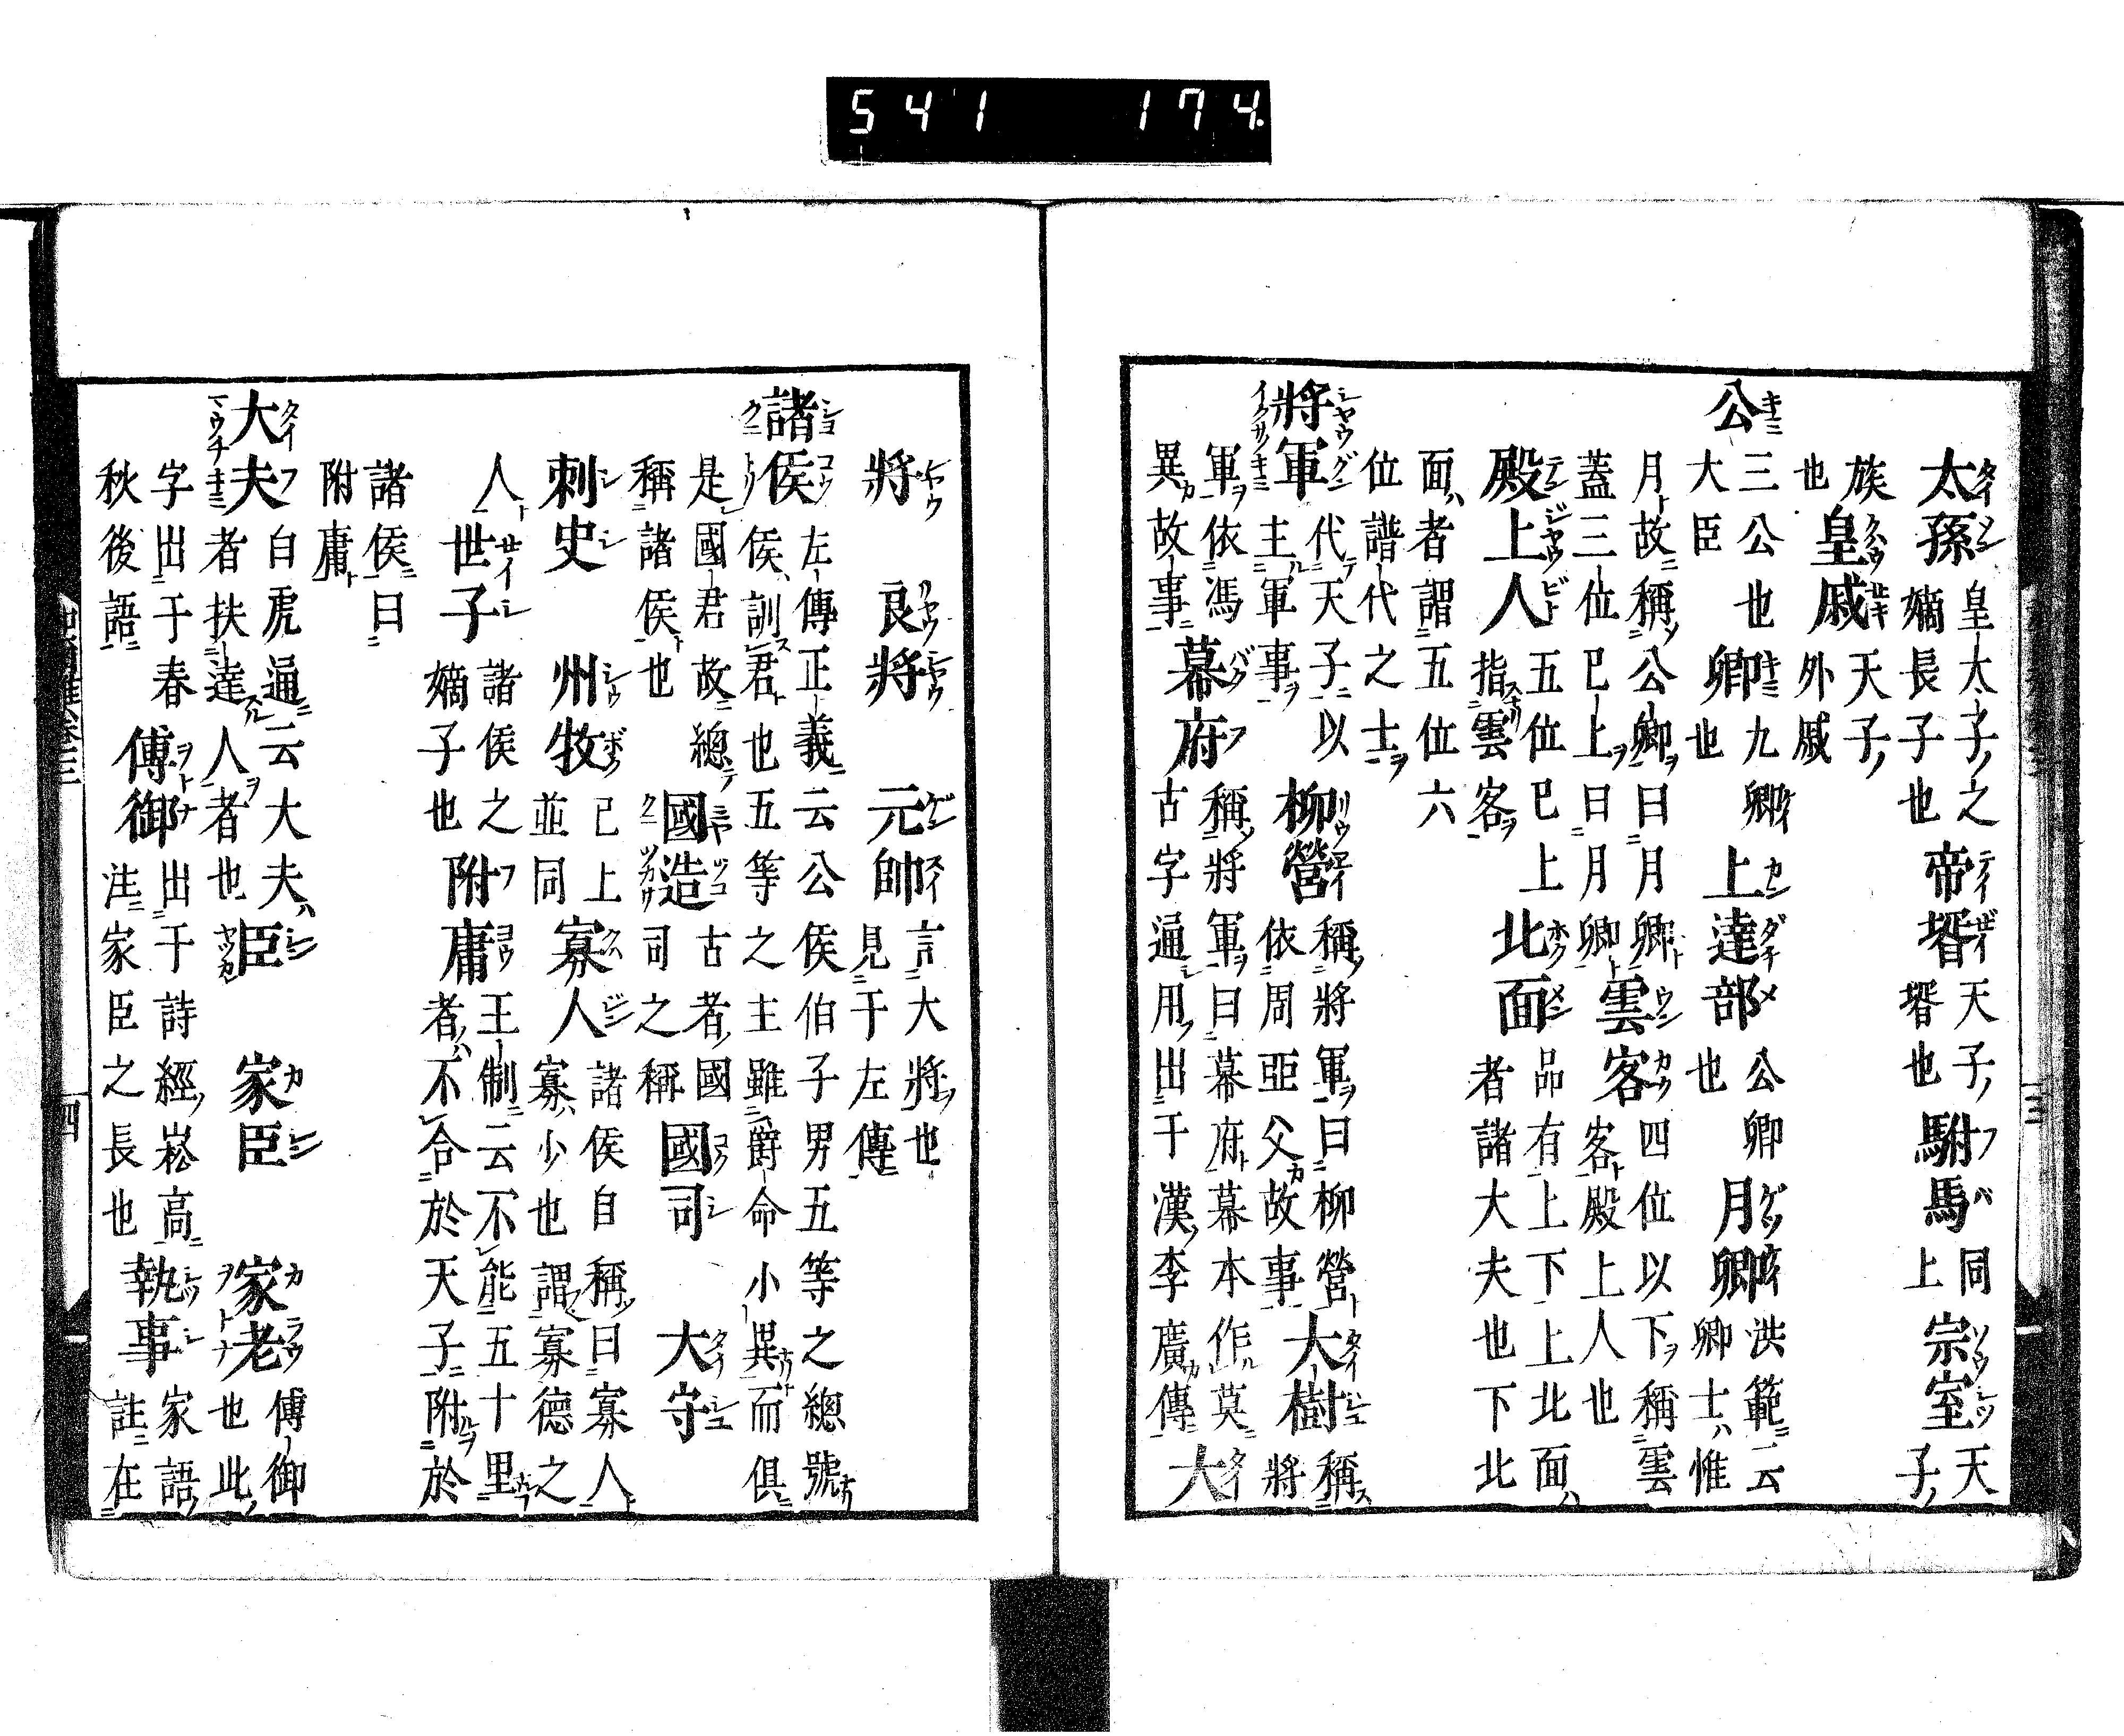 541 174
太孫 皇太子之嫡長子也 帝壻 天子壻也 駙馬 同上 宗室 天子
族也 皇戚 天子外戚
公 三公大臣也 卿 九卿也 上達部 公卿也 月卿 洪範云卿士惟
月故稱公卿曰月卿蓋三位已上曰月卿 雲客 四位以下稱雲客殿上人也
殿上人 五位已上指雲客 北面 品有上下上北面者諸大夫也下北
面者謂五位六位譜代之士
將軍 代天子以主軍事 柳營 稱將軍曰柳營依周亞父故事 大樹 稱將
軍依馮異故事 幕府 稱將軍曰幕府幕本作莫古字通用出于漢李廣傳 大
將 良將 元帥 言大將也見于左傳
諸侯 左傳正義云公侯伯子男五等之總號侯訓君也五等之主雖爵命小異而俱
是國君故總稱諸侯也 國造 古者國司之稱 國司 大守
刺史 州牧 已上並同 寡人 諸侯自稱曰寡人寡少也謂寡德之
人 世子 諸侯之嫡子也 附庸 王制云不能五十里者不合於天子附於
諸侯曰附庸
大夫 白虎通云大夫者扶達人者也 臣 家臣 家老 傅御也此
字出于春秋後語 傅御 出于詩經崧高注家臣之長也 執事 家語註在
四